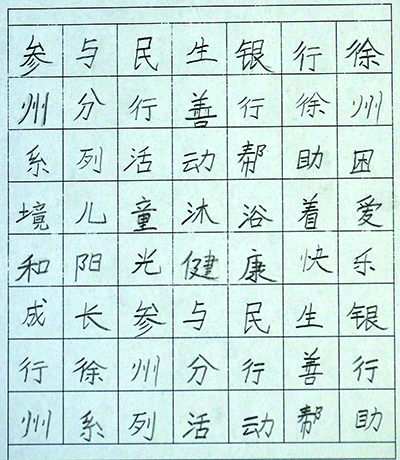 参与民生银行徐
州分行善行徐州
系列活动帮助困
境儿童沐浴着爱
和阳光健康快乐
成长参与民生银
行徐州分行善行
州系列活动帮助